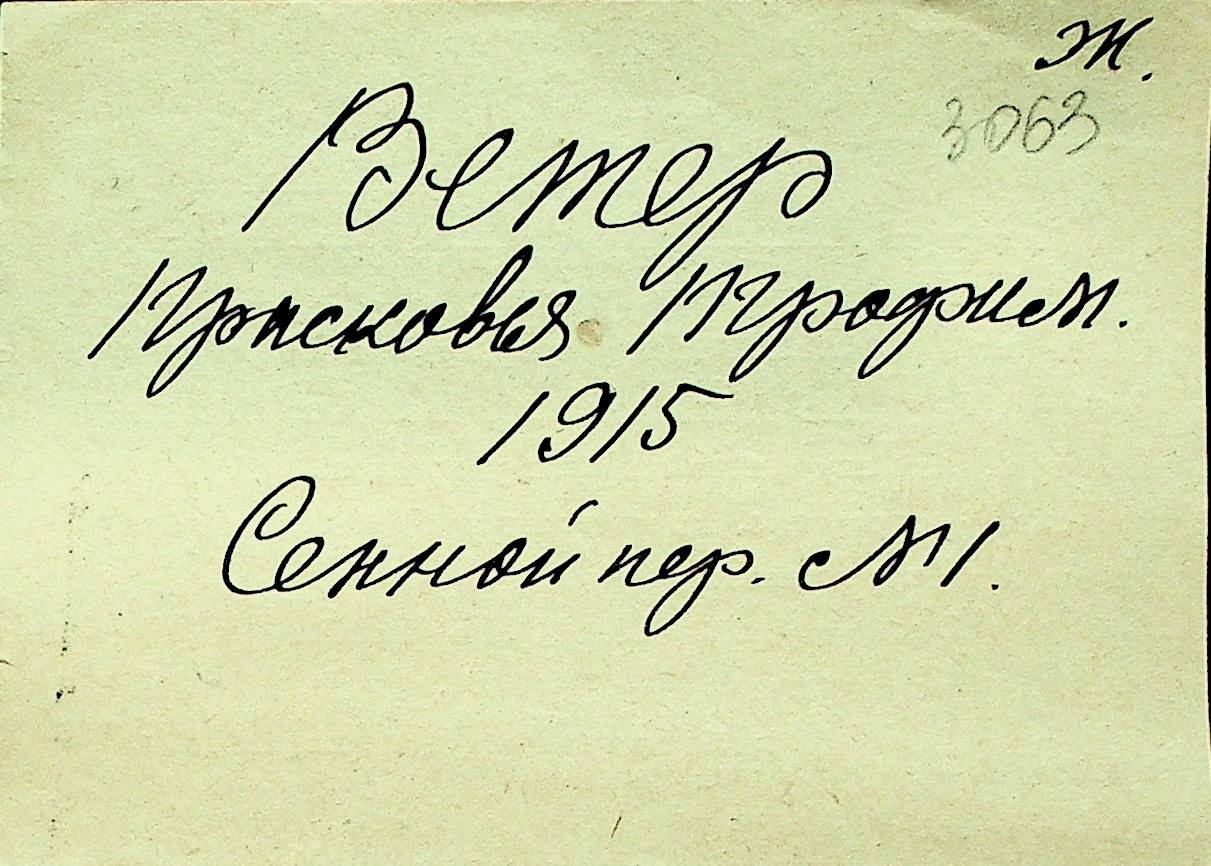 Ж.
3063
Ветер
Прасковья Трофим.
1915
Сенной пер. №1.